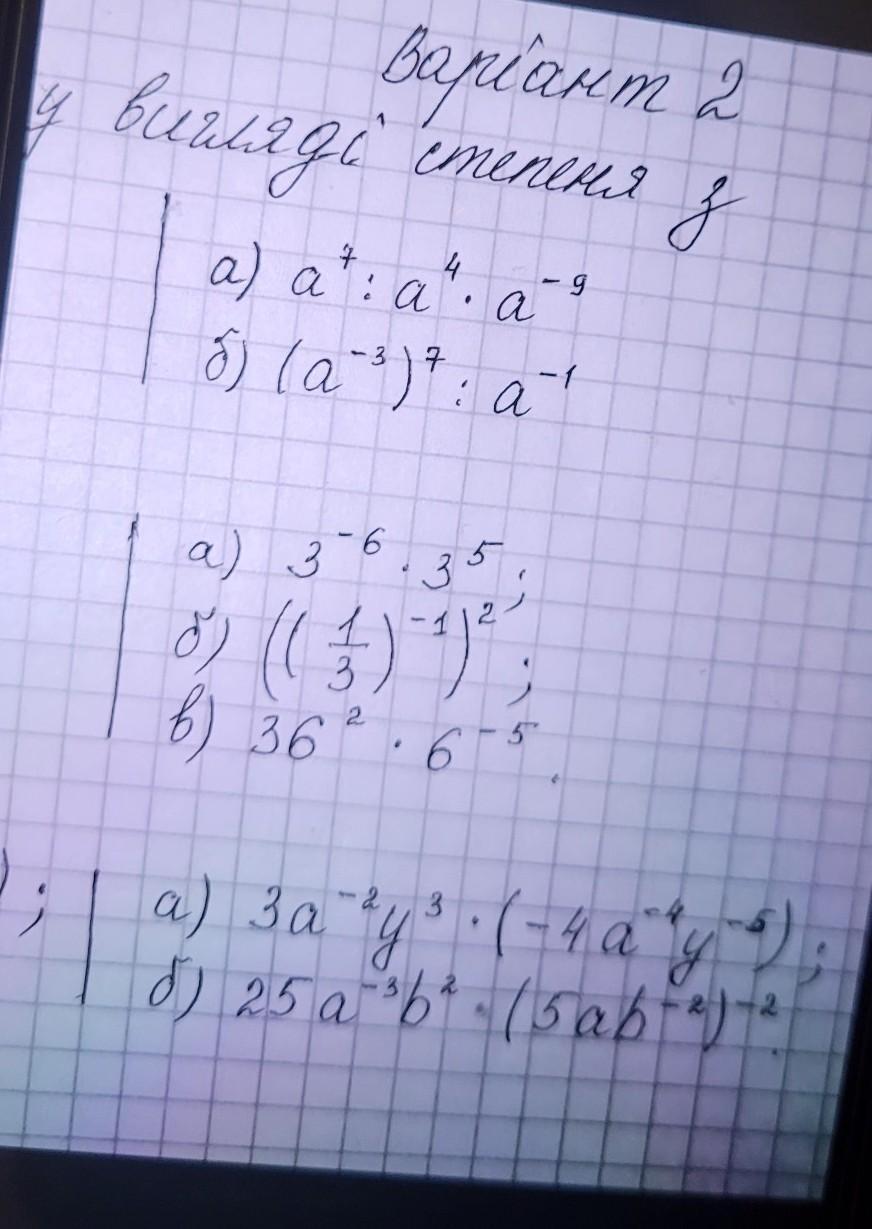 Варіант 2
у вигляді степеня з
а) a⁷ : a⁴ · a⁻⁹
б) (a⁻³)⁷ : a⁻¹
а) 3⁻⁶ · 3⁵;
б) ((1/3)⁻¹)²;
в) 36² · 6⁻⁵.
); а) 3a⁻²y³ · (-4a⁻⁴y⁻⁵);
б) 25a⁻³b² · (5ab⁻²)⁻².